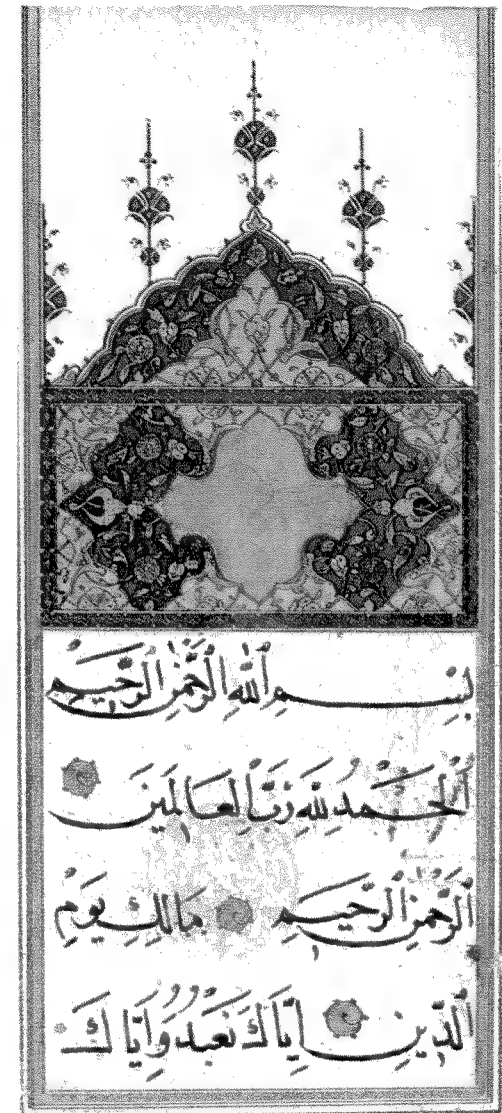 بِسْمِ اللَّهِ الرَّحْمَنِ الرَّحِيمِ
الْحَمْدُ لِلَّهِ رَبِّ الْعَالَمِينَ
الرَّحْمَنِ الرَّحِيمِ مَالِكِ يَوْمِ
الدِّينِ إِيَّاكَ نَعْبُدُ وَإِيَّاكَ